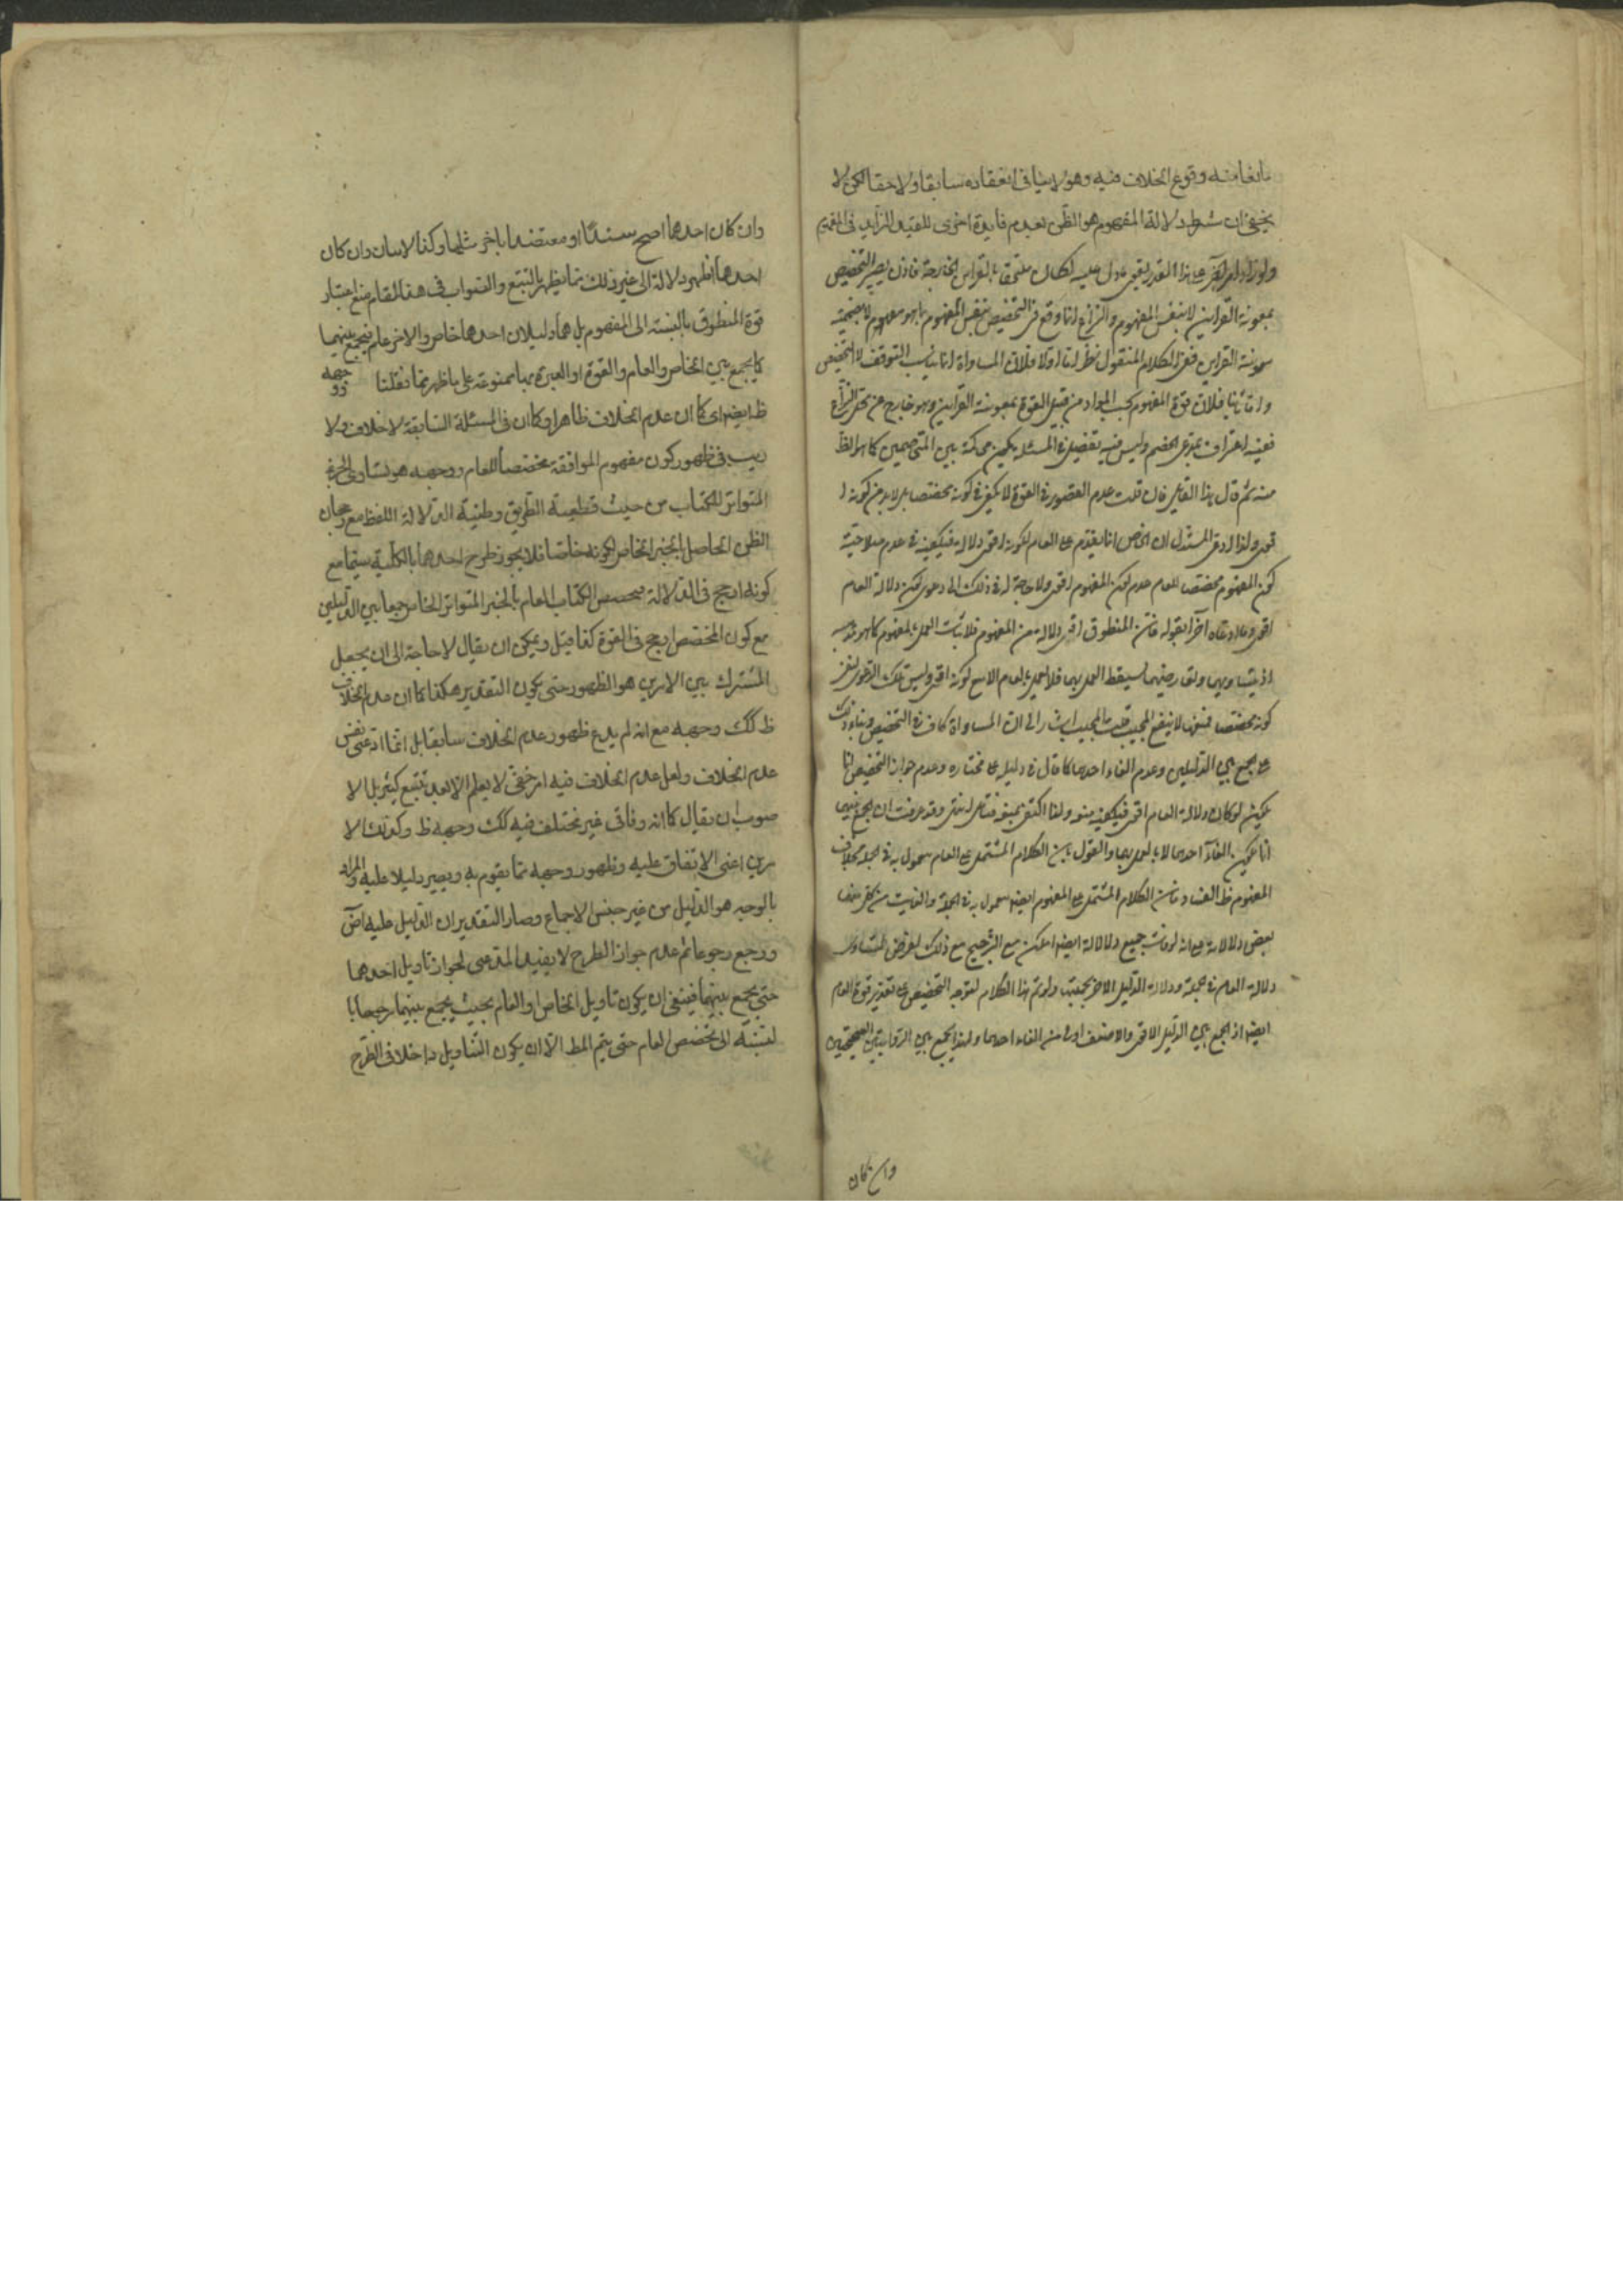 مانعا منه وقوع الخلاف فيه وهو لا ينافي انعقاده سابقا ولاحقا لكن لا
يخفى ان شرط دلالة المفهوم هو الظن بعدم فايدة اخرى للقيد الزايد في
على هذا القدر بالقراين الخارجة فاذن يصير التخصيص
بمعونة القراين لا بنفس المفهوم والنزاع انما وقع في التخصيص بنفس المفهوم بما هو مفهوم لا بضميمة
معونة القراين ففي الكلام المنقول نظر اما اولا فلان المساواة انما يناسب التوقف لا التخصيص
واما ثانيا فلان قوة المفهوم بحسب المواد من قبيل القوة بمعونة القراين وهو خارج عن محل النزاع
ففيه اعتراف بمدعى الخصم وليس فيه تفصيل في المسئلة محاكمة بين المتخاصمين كما هو الظ
منه ثم قال هذا القايل فان قلت عدم القصور في القوة لا يكفي في كونه مخصصا بل لا بد من كونه ا
قوى ولذا ادعى المستدل ان الخاص انما يقدم على العام لكونه اقوى دلالة فيكفيه في عدم صلاحية
كون المفهوم مخصصا للعام عدم كون المفهوم اقوى ولا حاجة له في ذلك الى دعوى كون دلالة العام
اقوى وما ادعاه آخرا بقوله فان المنطوق اقوى دلالة من المفهوم فلاثبات العمل بالمفهوم كما هو مذهبه
اذ بتساويهما وتعارضهما يسقط العمل بهما فلا يعمل بالعام الا مع كونه اقوى وليس تلك الدعوى لنفي
كونه مخصصا فمنعها لا ينفع المجيب قلت المجيب اشار الى ان المساواة كاف في التخصيص وبناء ذلك
على الجمع بين الدليلين وعدم الغاء احدهما كما قال في دليله على مختاره وعدم جواز التخصيص انما
يمكن لو كان دلالة العام اقوى فيكفيه منعه ولذا اكتفى بمنعه فتامل وقد عرفت ان الجمع بينهما
انما يمكن بالغاء احدهما لا بالعمل بهما والقول بان الكلام المشتمل على العام معمول به في الجملة بخلاف
المفهوم ظ الفساد فان الكلام المشتمل على المفهوم ايضا معمول به في الجملة
بعض دلالاته مع انه لو فات جميع دلالاته ايضا امكن منع الترجيح مع ذلك لفرض التساوي
دلالة العام في الجملة ودلالة الدليل الآخر بجمعيته ولو تم هذا الكلام لتوجه التخصيص على تقدير قوة العام
ايضا اذ الجمع بين الدليل الاقوى والاضعف اولى من الغاء احدهما ولهذا يجمع بين الروايتين الصحيحتين
وان كان
وان كان احدهما اصح سندا او معتضدا باخر مثلها وكذا الايتان وان كان
احدهما اظهر دلالة الى غير ذلك مما يظهر بالتتبع والصواب في هذا المقام منع اعتبار
قوة المنطوق بالنسبة الى المفهوم بل هما دليلان احدهما خاص والاخر عام فيجمع بينهما
كما يجمع بين الخاص والعام والقوة او العبرة بها ممنوعة على ما ظهر مما نقلنا ووجهه
ظ ايضا اي كما ان عدم الخلاف ظاهر او كما ان في المسئلة السابقة لا خلاف ولا
ريب في ظهور كون مفهوم الموافقة مخصصا للعام ووجهه هو تساوي الخبر
المتواتر للكتاب من حيث قطعية الطريق وظنية الدلالة اللفظ مع رجحان
الظن الحاصل بالخبر الخاص لكونه خاصا فلا يجوز طرح احدهما بالكلية سيما مع
كونه ارجح في الدلالة فخصص الكتاب العام بالخبر المتواتر الخاص جمعا بين الدليلين
مع كون المخصص ارجح في القوة كذا قيل ويمكن ان يقال لا حاجة الى ان يجعل
المشترك بين الامرين هو الظهور حتى يكون التقدير هكذا كما ان عدم الخلاف
ظ كك وجهه مع انه لم يدع ظهور عدم الخلاف سابقا بل انما ادعى نفس
عدم الخلاف ولعل عدم الخلاف فيه امر خفي لا يعلم الا بعد تتبع كثير بل الا
صوب ان يقال كما انه وفاقي غير مختلف فيه كك وجهه ظ وكون الا
مرين اعني الاتفاق عليه وظهور وجهه مما يقوم به ويصير دليلا عليه والمراد
بالوجه هو الدليل من غير جنس الاجماع وصار التقدير ان الدليل عليه اض
ورجع رجوعا ثم عدم جواز الطرح لا يفيد المدعى لجواز تاويل احدهما
حتى يجمع بينهما فينبغي ان يكون تاويل الخاص او العام بحيث يجمع بينهما رجعا با
لنسبة الى تخصص العام حتى يتم المط الا ان يكون التاويل داخلا في الطرح